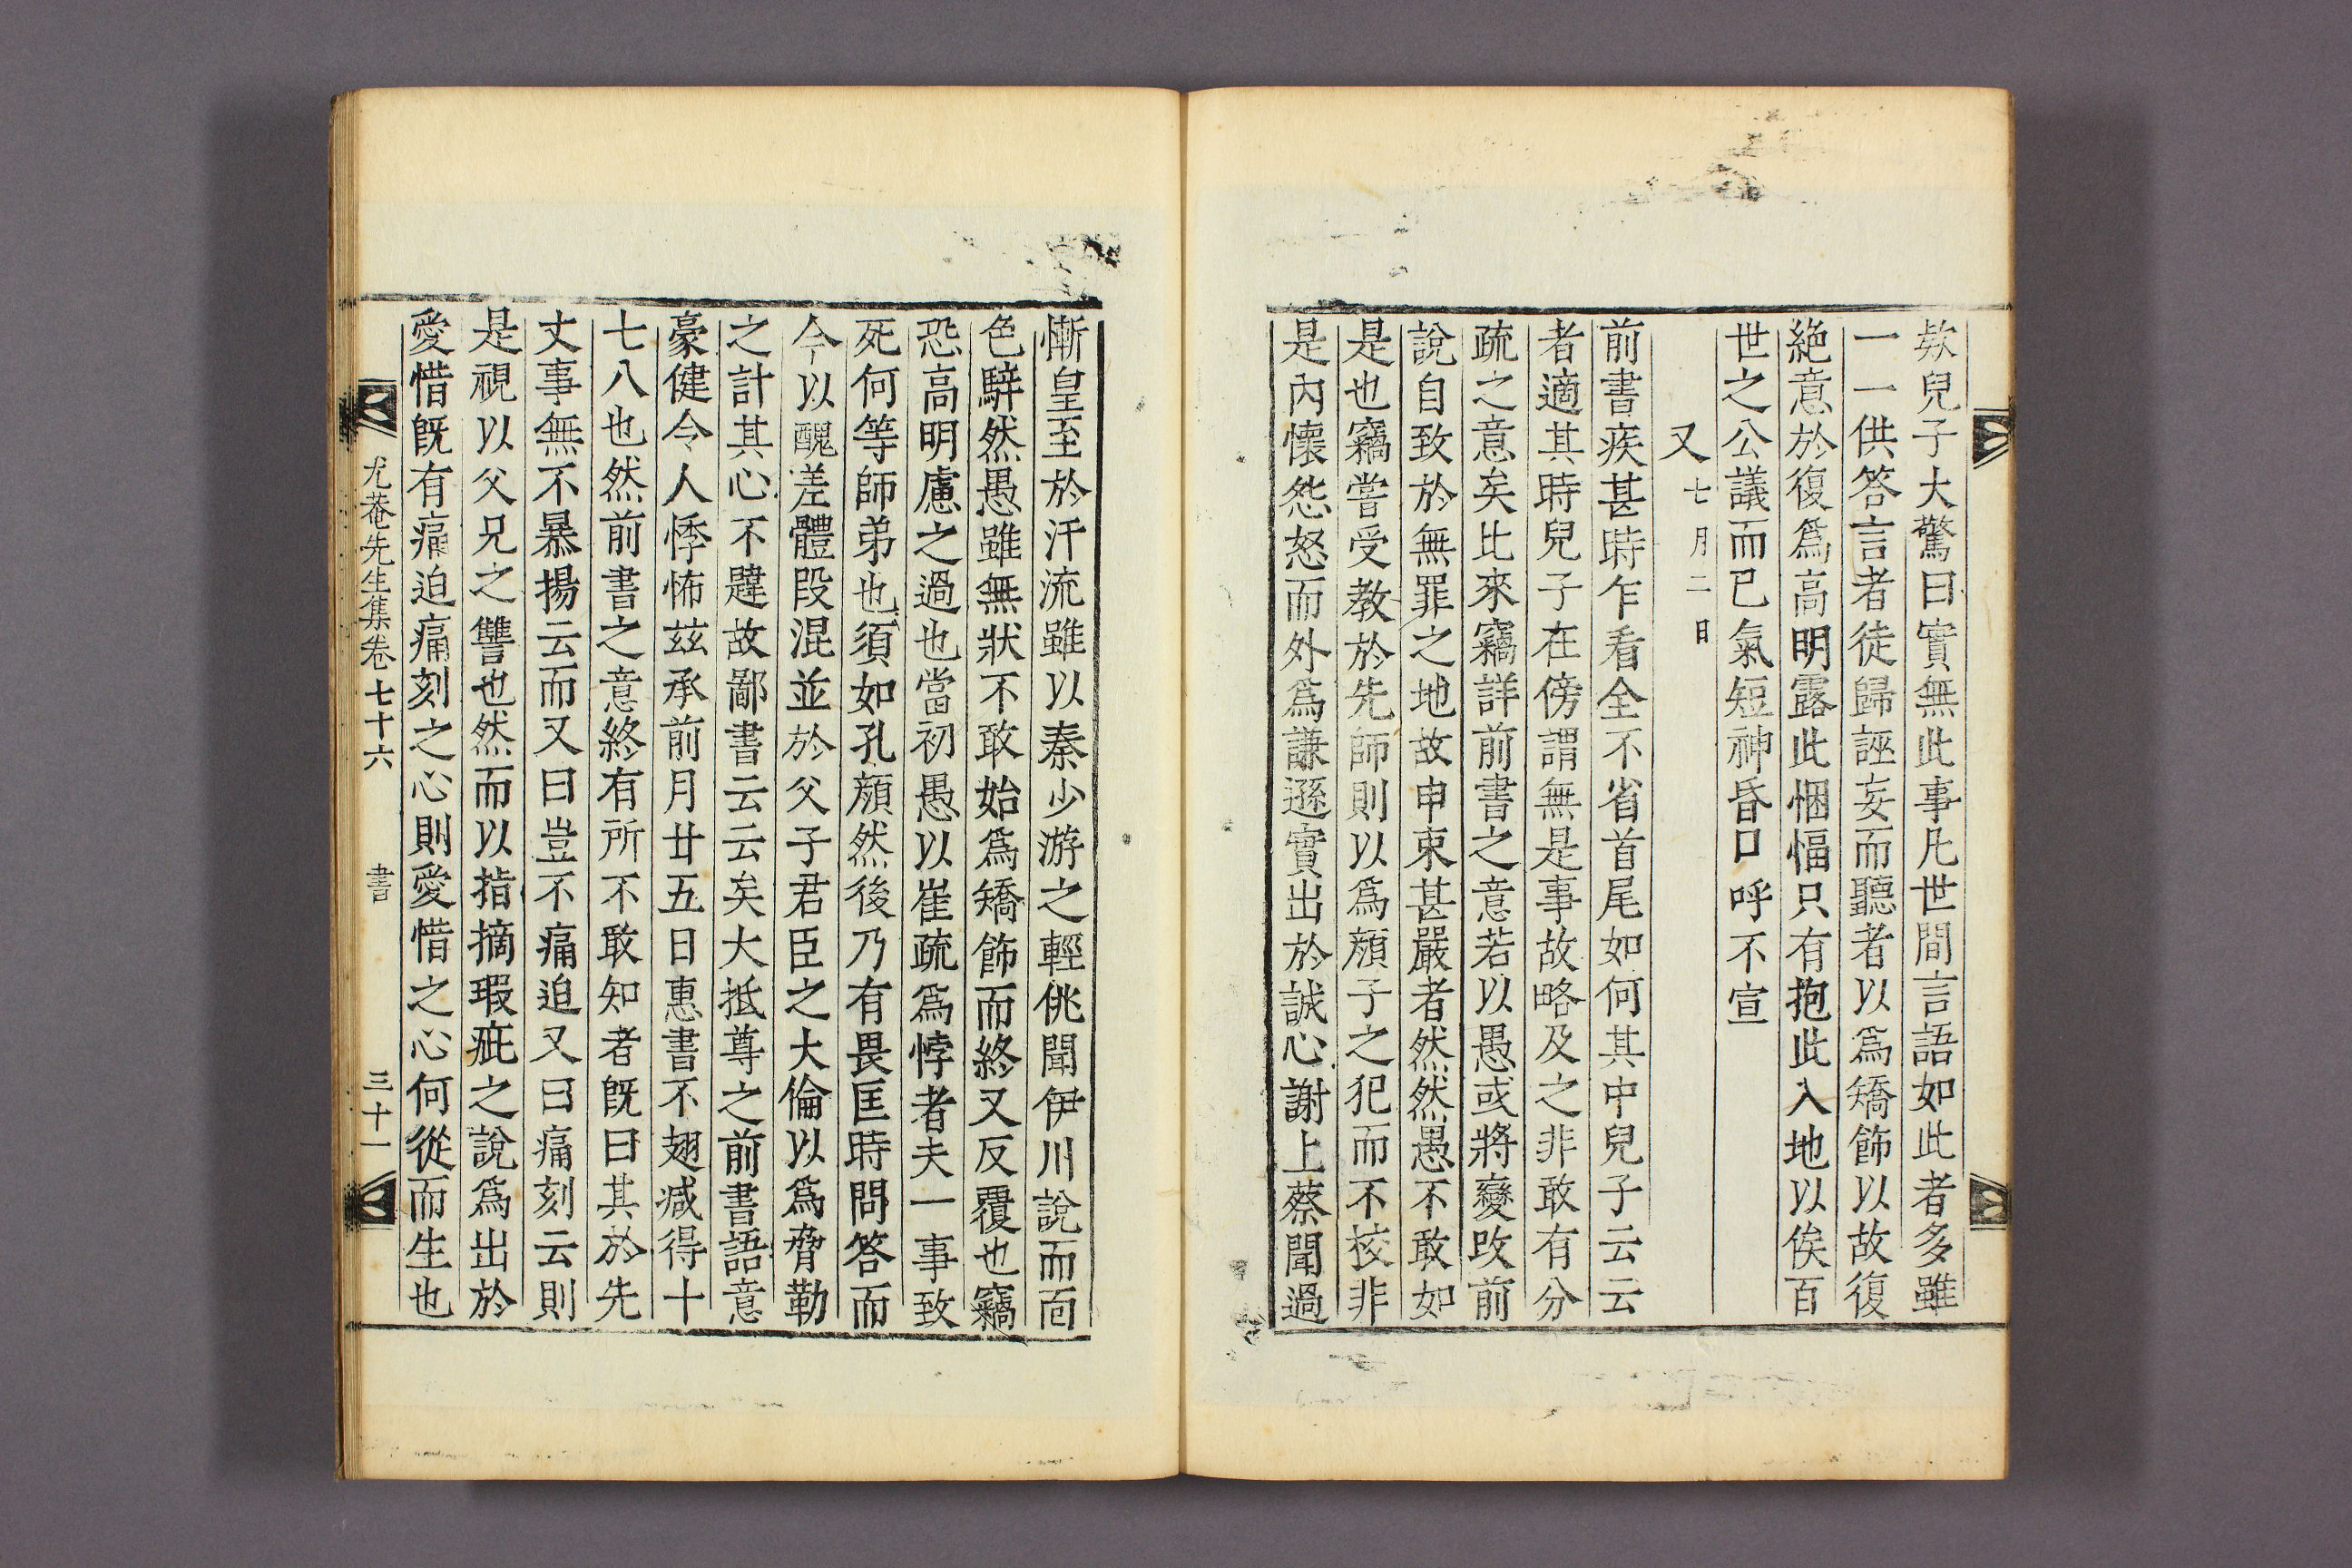 欸兒子大驚曰實無此事凡世間言語如此者多雖
一一供答言者徒歸誣妄而聽者以爲矯飾以故復
絶意於復爲高明露此悃愊只有抱此入地以俟百
世之公議而已氣短神昏口呼不宣
又七月二日
前書疾甚時乍看全不省首尾如何其中兒子云云
者適其時兒子在傍謂無是事故略及之非敢有分
疏之意矣比來竊詳前書之意若以愚或將變改前
說自致於無罪之地故申束甚嚴者然然愚不敢如
是也竊嘗受教於先師則以爲顔子之犯而不校非
是內懷怨怒而外爲謙遜實出於誠心謝上蔡聞過
慚皇至於汗流雖以秦少游之輕佻聞伊川說而面
色騂然愚雖無狀不敢始爲矯飾而終又反覆也竊
恐高明慮之過也當初愚以崔疏爲悖者夫一事致
死何等師弟也須如孔顔然後乃有畏匡時問答而
今以醜差體段混並於父子君臣之大倫以爲脅勒
之計其心不韙故鄙書云云矣大抵尊之前書語意
豪健令人悸怖玆承前月廿五日惠書不翅减得十
七八也然前書之意終有所不敢知者旣曰其於先
丈事無不暴揚云而又曰豈不痛迫又曰痛刻云則
是視以父兄之讐也然而以指摘瑕疵之說爲出於
愛惜旣有痛迫痛刻之心則愛惜之心何從而生也
尤菴先生集卷七十六　書　三十一